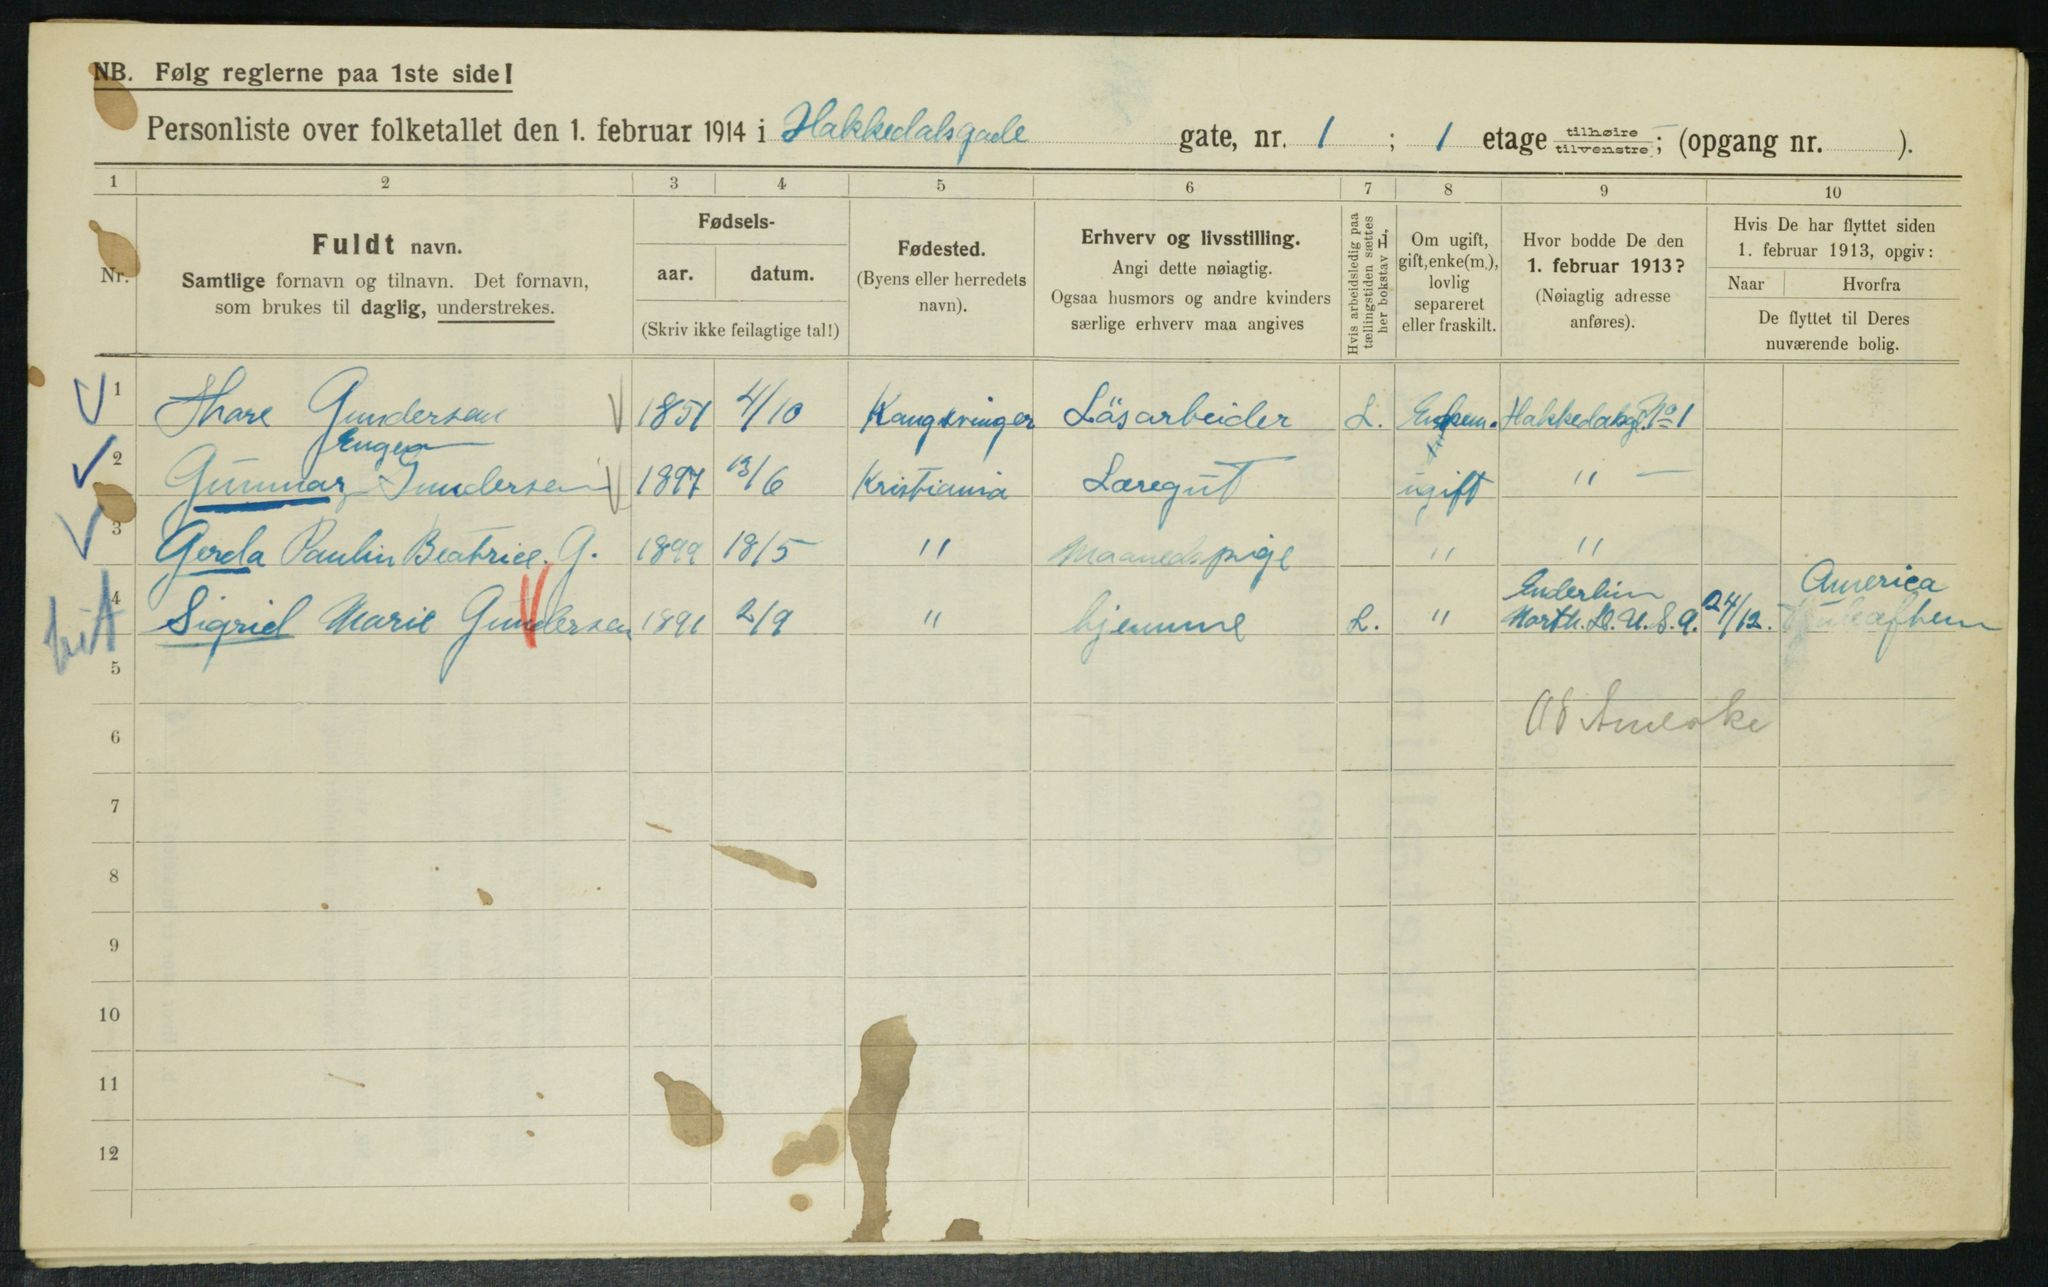 NB. Følg reglerne paa 1ste side!
Personliste over folketallet den 1. februar 1914 i Hakkedalsgade gate, nr. 1 ; 1 etage tilhøire tilvenstre ; (opgang nr. ).
1 2 3 4 5 6 7 8 9 10
Nr.
Fuldt navn.
Samtlige fornavn og tilnavn. Det fornavn,
som brukes til daglig, understrekes.
Fødsels-
aar. datum.
(Skriv ikke feilagtige tal!)
Fødested.
(Byens eller herredets
navn).
Erhverv og livsstilling.
Angi dette nøiagtig.
Ogsaa husmors og andre kvinders
særlige erhverv maa angives
Hvis arbeidsledig paa
tællingstiden sættes
her bokstav L.
Om ugift,
gift, enke(m.),
lovlig
separeret
eller fraskilt.
Hvor bodde De den
1. februar 1913?
(Nøiagtig adresse
anføres).
Hvis De har flyttet siden
1. februar 1913, opgiv:
Naar Hvorfra
De flyttet til Deres
nuværende bolig.
1 Thore Gundersen 1851 4/10 Kongsvinger Løsarbeider L. Enkem. Hakkedalsg. No 1
2 Gunnar Gundersen 1897 13/6 Kristiania Læregut ugift " —
3 Gerda Paulin Beatrice. G. 1899 18/5 " Maanedspige " "
4 Sigrid Marie Gundersen 1891 2/9 " hjemme L. " Enderlin
North. D. U. S. A. 24/12. America
5
6
7
8
9
10
11
12